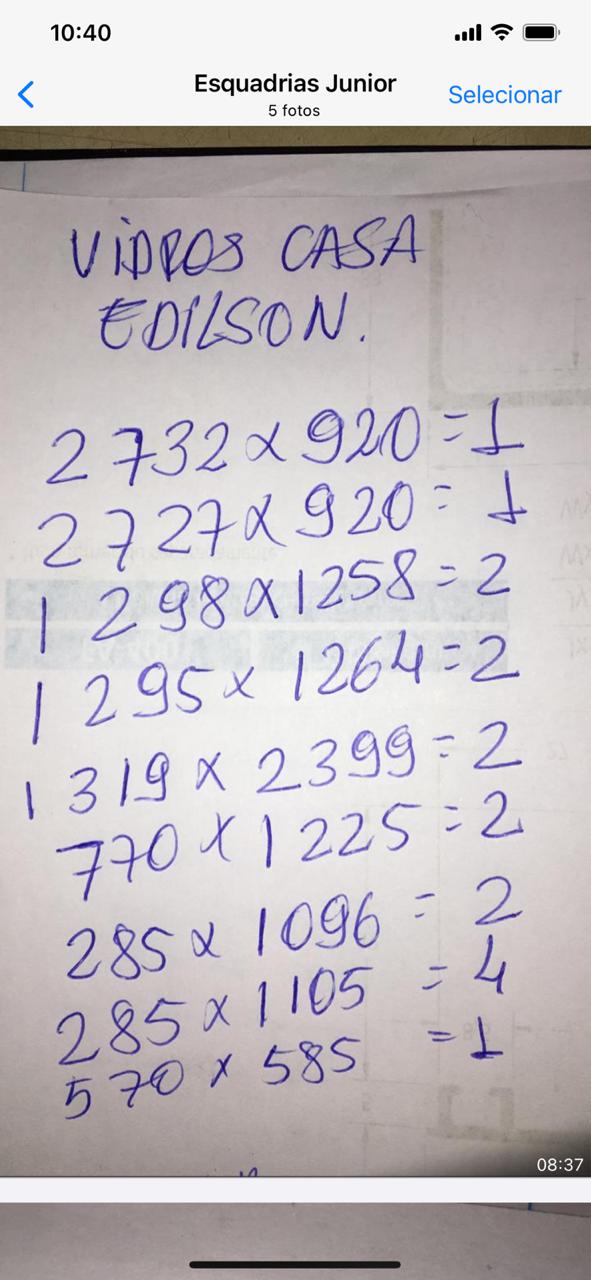 10:40
Esquadrias Junior
5 fotos
Selecionar
VIDROS CASA
EDILSON.
2732 x 920 = 1
2727 x 920 = 1
1298 x 1258 = 2
1295 x 1264 = 2
1319 x 2399 = 2
770 x 1225 = 2
285 x 1096 = 2
285 x 1105 = 4
570 x 585 = 1
08:37